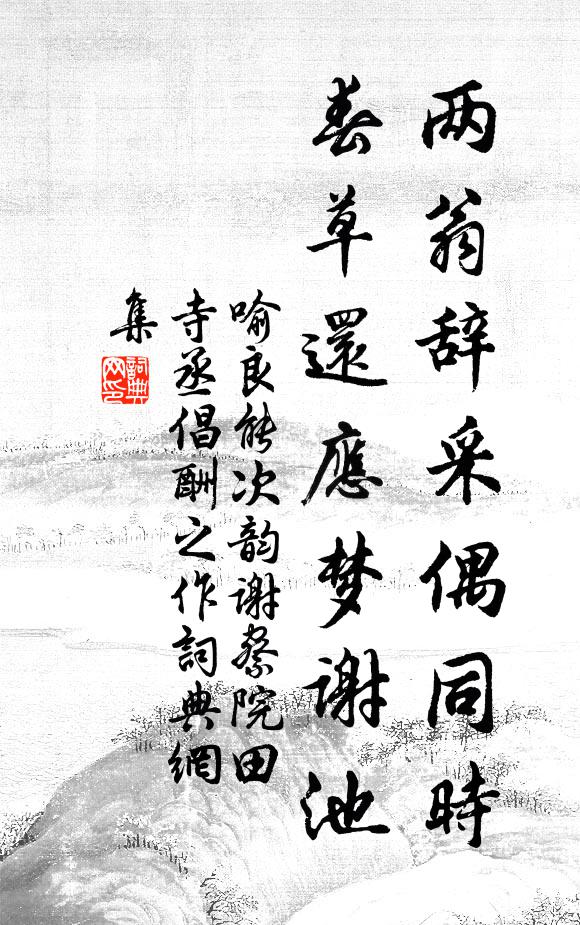 两翁辞采偶同時
春草還應梦謝池
喻良能次韵谢察院田
寺丞倡酬之作詞典網
集
詞典网印